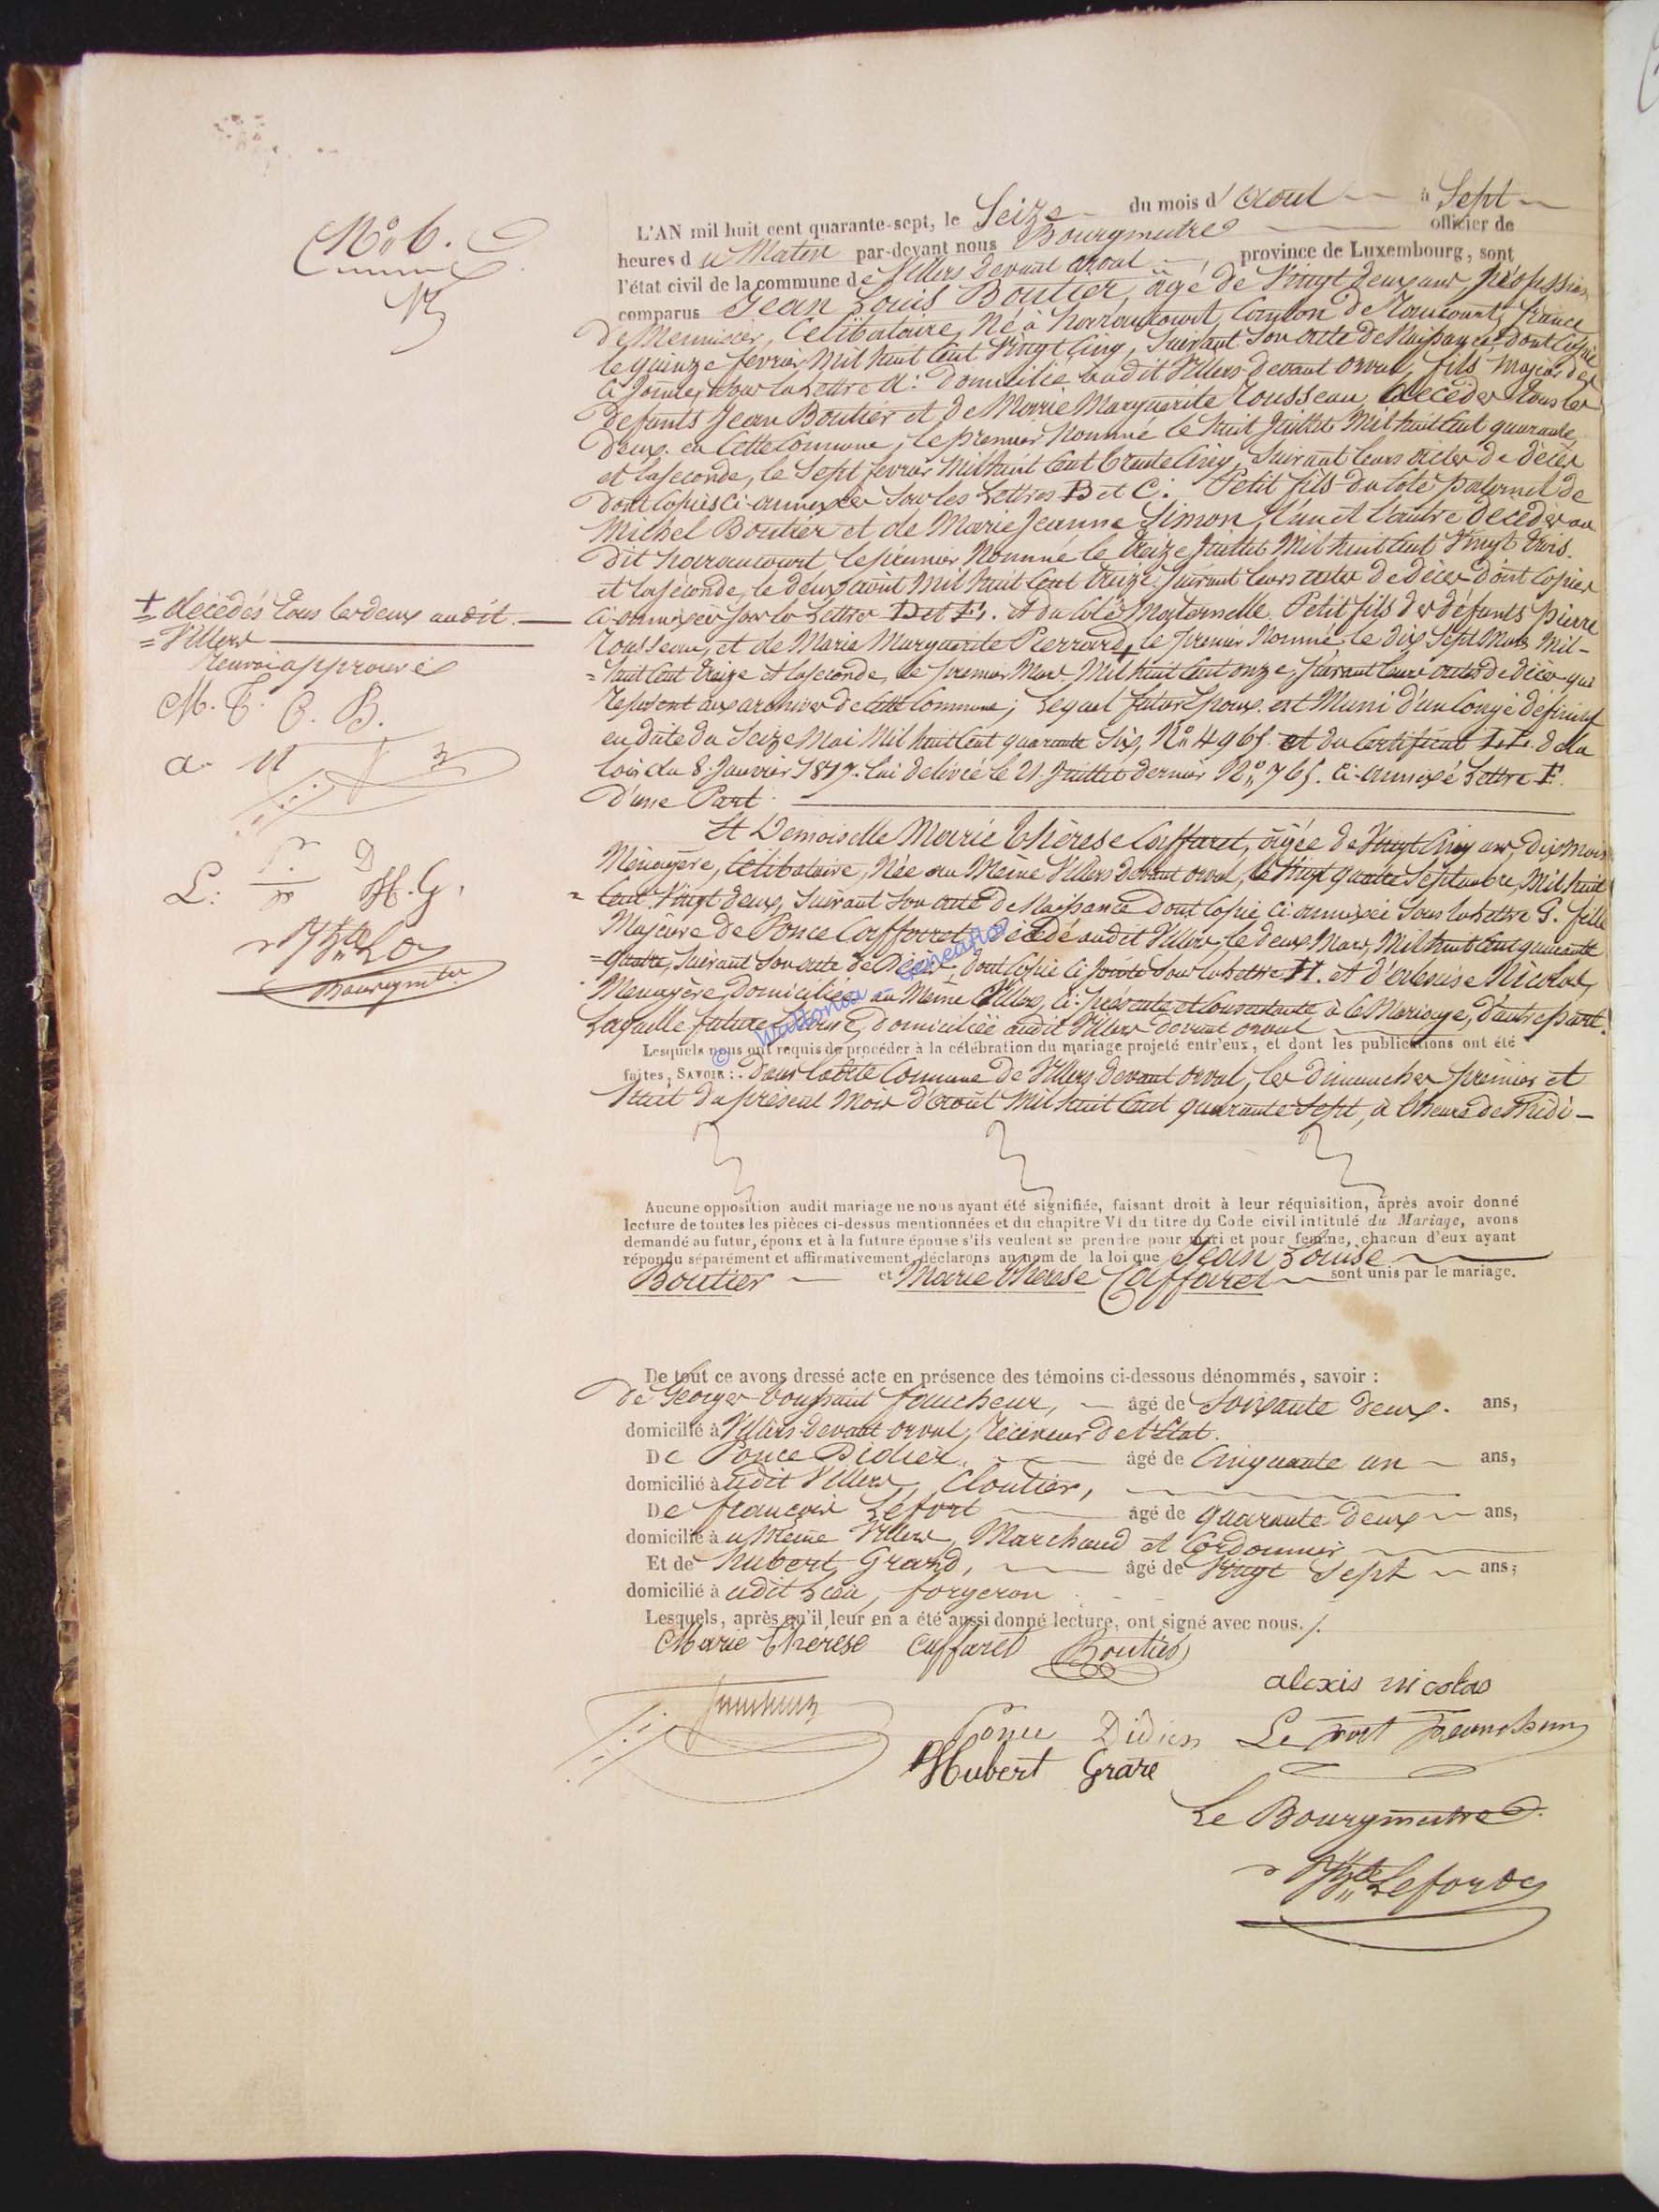 N° 6.
L'AN mil huit cent quarante-sept, le Seize du mois d'aout à Sept
heures du Matin par-devant nous Bourgmestre officier de
l'état civil de la commune de Villers devant orval, province de Luxembourg, sont
comparus Jean Louis Boutier, agé de Vingt deux ans profession
De Menuisier, Celibataire, Né à haraucourt, Canton de Raucourt, france
le quinze fevrier Mil huit Cent Vingt Cinq, Suivant Son acte de Naissance dont Copie
Ci Jointe, sous la Lettre A: Domicilié audit Villers devant orval, fils Majeur des
Defunts Jean Boutier et de Marie Marguerite Rousseau, Décédés tous les
Deux en Cette Commune, le premier Nommé le huit Juillet Mil huit Cent quarante,
et la seconde, le Sept fevrier Mil huit Cent trente Cinq, Suivant leurs actes de décès
Dont Copies Ci-annexées sous les Lettres B et C. Petit fils du Coté paternel de
Michel Boutier et de Marie Jeanne Simon, l'un et l'autre Décédés au
Dit haraucourt, le premier Nommé le treize Juillet Mil huit Cent Vingt trois.
et la seconde, le deux août Mil huit Cent treize Suivant leurs actes de décès dont Copies
Ci-annexées sous les Lettres D et E. et du Coté Maternelle Petit fils des défunts Pierre
Rousseau, et de Marie Marguerite Pierrard + le premier Nommé le dix Sept Mars Mil-
= huit Cent treize et la seconde, le premier Mars Mil huit Cent onze, Suivant leurs actes de décès qui
Reposent aux archives de Cette Commune; Lequel futur Epoux est Muni d'un Congé définitif
en date du Seize Mai Mil huit Cent quarante Six, N° 4965. et du Certificat L.L. de la
loi du 8 Janvier 1817. lui delivré le 21 Juillet dernier N° 765. Ci-annexé Lettre F.
D'une Part.
+ décédés tous les deux audit
= Villers
Renvoi approuvé
M. T. C. B.
a. n
P. D
L: H. G.
Bourgmtre
Et Demoiselle Marie thérese Caffaret, agée de Vingt Cinq ans, dix mois
Ménagère, Célibataire, Née au Même Villers devant orval, le Vingt quatre Septembre, Mil huit
= Cent Vingt deux, Suivant Son acte de Naissance dont Copie Ci-annexée Sous la Lettre G. fille
Majeure de Ponce Caffaret, Décédé audit Villers le deux Mars, Mil huit Cent quarante
= quatre, Suivant Son acte de Décès, dont Copie Ci Jointe Sous la Lettre H. et d'alexise Nicolas,
Menagère, domiciliée au Même Villers, Ci-présente et Consentante à Ce Mariage, d'autre part.
Laquelle future Epouse, domiciliée audit Villers devant orval
© Wallonia - Geneafrog
Lesquels nous ont requis de procéder à la célébration du mariage projeté entr'eux, et dont les publications ont été
faites, SAVOIR: Dans ladite Commune de Villers devant orval, les dimanches premier et
huit du présent Mois d'août Mil huit Cent quarante Sept, à l'heure de Midi -
Aucune opposition audit mariage ne nous ayant été signifiée, faisant droit à leur réquisition, après avoir donné
lecture de toutes les pièces ci-dessus mentionnées et du chapitre VI du titre du Code civil intitulé du Mariage, avons
demandé au futur, époux et à la future épouse s'ils veulent se prendre pour mari et pour femme, chacun d'eux ayant
répondu séparément et affirmativement, déclarons au nom de la loi que Jean Louise
Boutier et Marie thérese Caffaret sont unis par le mariage.
De tout ce avons dressé acte en présence des témoins ci-dessous dénommés, savoir :
De Georges toussaint faucheux, âgé de Soixante deux ans,
domicilié à Villers devant orval, Receveur de l'Etat.
De Ponce Didier, âgé de Cinquante un ans,
domicilié à udit Villers, Cloutier,
De françois Lefort âgé de quarante deux ans,
domicilié à u Même Villers, Marchand et Cordonnier
Et de hubert Grard, âgé de Vingt Sept ans;
domicilié à udit Lieu, forgeron
Lesquels, après qu'il leur en a été aussi donné lecture, ont signé avec nous.
Marie thérese Caffaret Boutier
alexis nicolas
Ponce Didier Le fort
Hubert Grare
Le Bourgmestre
Lefort